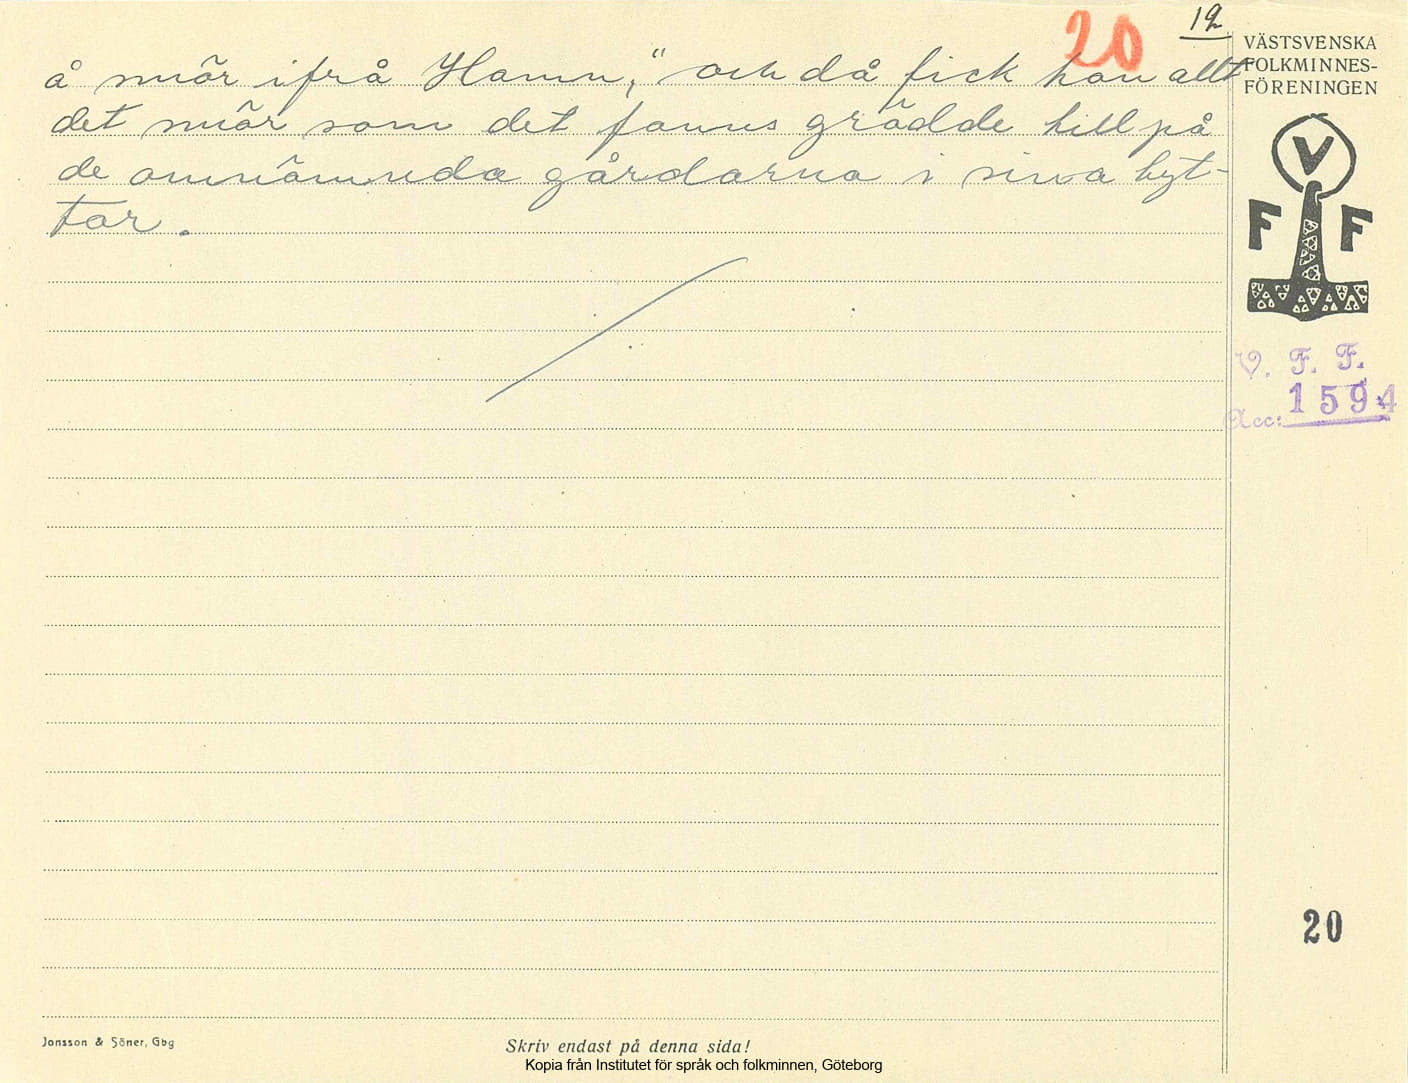 20
12
å smör ifrå Hamn," och då fick hon allt
det smör som det fanns grädde till på
de omnämnda gårdarna i sina byt-
tor.
VÄSTSVENSKA
FOLKMINNES-
FÖRENINGEN
V
F F
V. F. F.
Acc: 1594
20
Jonsson & Söner, Gbg
Skriv endast på denna sida!
Kopia från Institutet för språk och folkminnen, Göteborg